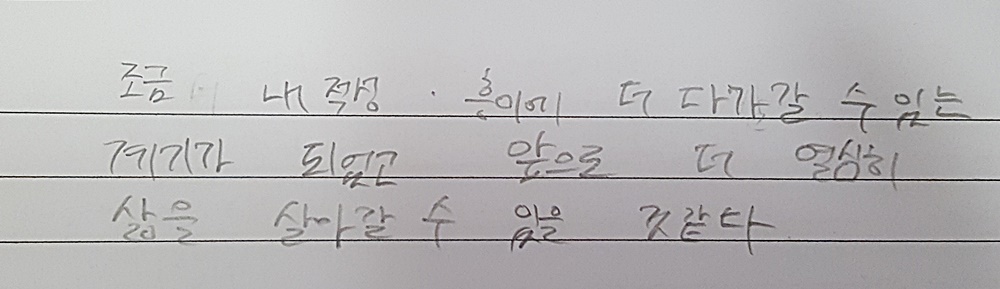 조금 내 적성 · 흥미에 더 다가갈 수 있는
계기가 되었고 앞으로 더 열심히
삶을 살아갈 수 있을 것같다